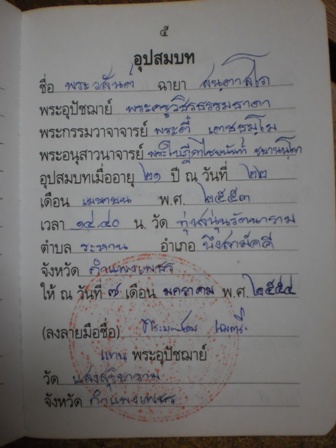 ๕
อุปสมบท
ชื่อ พระวสันต์ ฉายา
พระอุปัชฌาย์ พระครูวชิรธรรมธาดา
พระกรรมวาจาจารย์ พระตี๋ เตชธมฺโม
พระอนุสาวนาจารย์
อุปสมบทเมื่ออายุ ๒๑ ปี ณ วันที่ ๒๒
เดือน เมษายน พ.ศ. ๒๕๕๓
เวลา ๑๔.๔๐ น. วัด ทุ่งสนุ่นรัตนาราม
ตำบล ระหาน อำเภอ บึงสามัคคี
จังหวัด กำแพงเพชร
ให้ ณ วันที่ ๗ เดือน มกราคม พ.ศ. ๒๕๕๔
(ลงลายมือชื่อ)
แทน พระอุปัชฌาย์
วัด
จังหวัด กำแพงเพชร